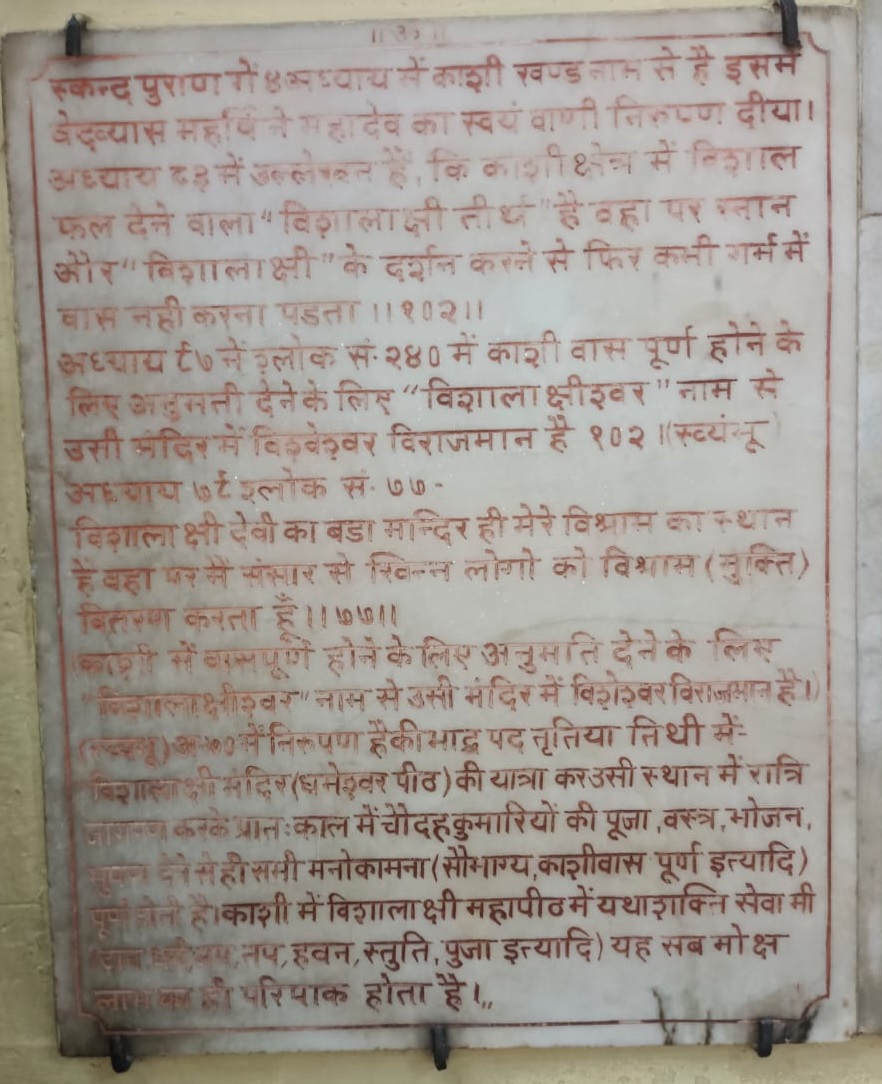 ॥ॐ॥
स्कन्द पुराण में ४ अध्याय में काशी खण्ड नाम से है इसमें
वेदव्यास महर्षि ने महादेव का स्वयं वाणी निरुपण दीया।
अध्याय ८३ में उल्लेखन हैं, कि काशी क्षेत्र में विशाल
फल देने वाला “विशालाक्षी तीर्थ” है वहा पर स्नान
और “विशालाक्षी” के दर्शन करने से फिर कभी गर्भ में
वास नही करना पडता ॥१०२॥
अध्याय ९७ में श्लोक सं. २४० में काशी वास पूर्ण होने के
लिए अनुमती देने के लिए “विशालाक्षीश्वर” नाम से
उसी मंदिर में विश्वेश्वर विराजमान है १०२।(स्वयंभू)
अध्याय ७९ श्लोक सं. ७७-
विशालाक्षी देवी का बडा मन्दिर ही मेरे विश्राम का स्थान
हैं वहा पर मै संसार से खिन्न लोगो को विश्राम (मुक्ति)
वितरण करता हूँ।।७७।।
(काशी में वासपूर्ण होने के लिए अनुमति देने के लिए
“विशालाक्षीश्वर” नाम से उसी मंदिर में विशेश्वर विराजमान है।)
(स्वयंभू) अ ७० में निरुपण है की भाद्र पद तृतिया तिथी में-
विशालाक्षी मंदिर (धर्मेश्वर पीठ) की यात्रा कर उसी स्थान में रात्रि
जागरण करके प्रातःकाल में चौदह कुमारियों की पूजा, वस्त्र, भोजन,
देने से ही सभी मनोकामना (सौभाग्य, काशीवास पूर्ण इत्यादि)
पूर्ण होती है। काशी में विशालाक्षी महापीठ में यथाशक्ति सेवा भी
जप, तप, हवन, स्तुति, पुजा इत्यादि) यह सब मोक्ष
लाभ का ही परिपाक होता है।,,